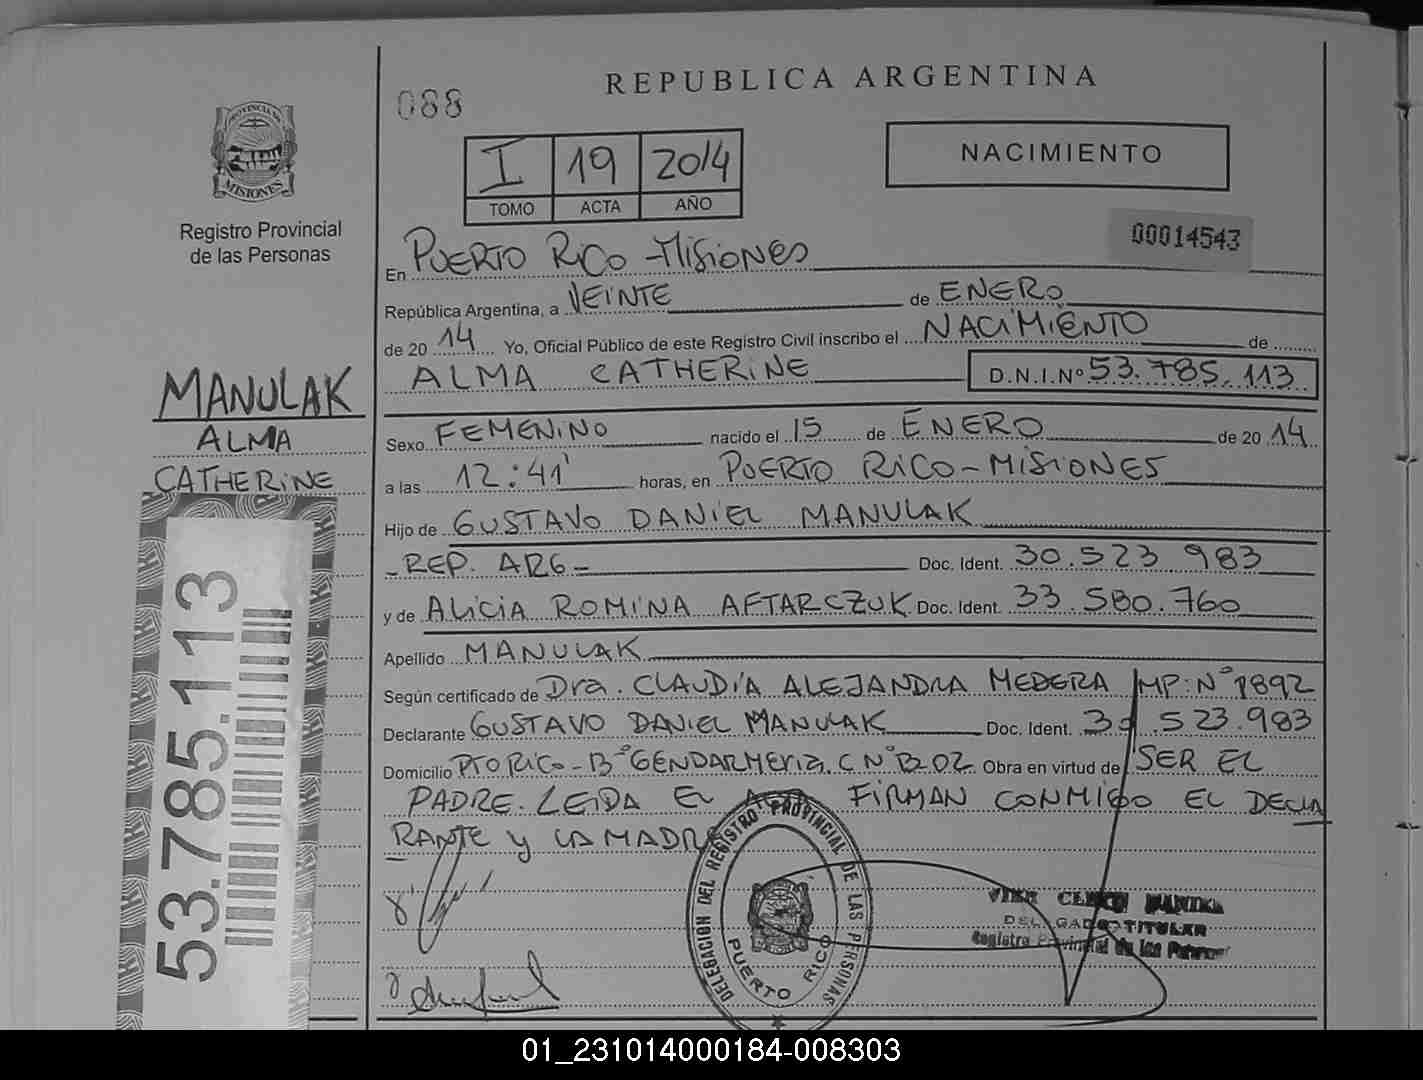 REPUBLICA ARGENTINA
088
PROVINCIA DE
MISIONES
Registro Provincial
de las Personas
I 19 2014
TOMO ACTA AÑO
NACIMIENTO
00014543
En PUERTO RICO - MISIONES
República Argentina, a VEINTE de ENERO
de 20 14 Yo, Oficial Público de este Registro Civil inscribo el NACIMIENTO de
ALMA CATHERINE D.N.I.Nº 53.785.113
MANULAK
ALMA
CATHERINE
Sexo FEMENINO nacido el 15 de ENERO de 20 14
a las 12:41' horas, en PUERTO RICO - MISIONES
Hijo de GUSTAVO DANIEL MANULAK
- REP. ARG - Doc. Ident. 30.523 983
y de ALICIA ROMINA AFTARCZUK Doc. Ident. 33.580.760
Apellido MANULAK
Según certificado de Dra. CLAUDIA ALEJANDRA MEDERA MP: Nº 1892
Declarante GUSTAVO DANIEL MANULAK Doc. Ident. 30.523.983
Domicilio PTO RICO - Bº GENDARMERIA. C Nº B202 Obra en virtud de SER EL
PADRE. LEIDA EL ACTA FIRMAN CONMIGO EL DECLA
RANTE Y LA MADRE
53.785.113
DELEGACION DEL REGISTRO PROVINCIAL DE LAS PERSONAS
PUERTO RICO
DELEGADO TITULAR
Registro Provincial de las Personas
01_231014000184-008303